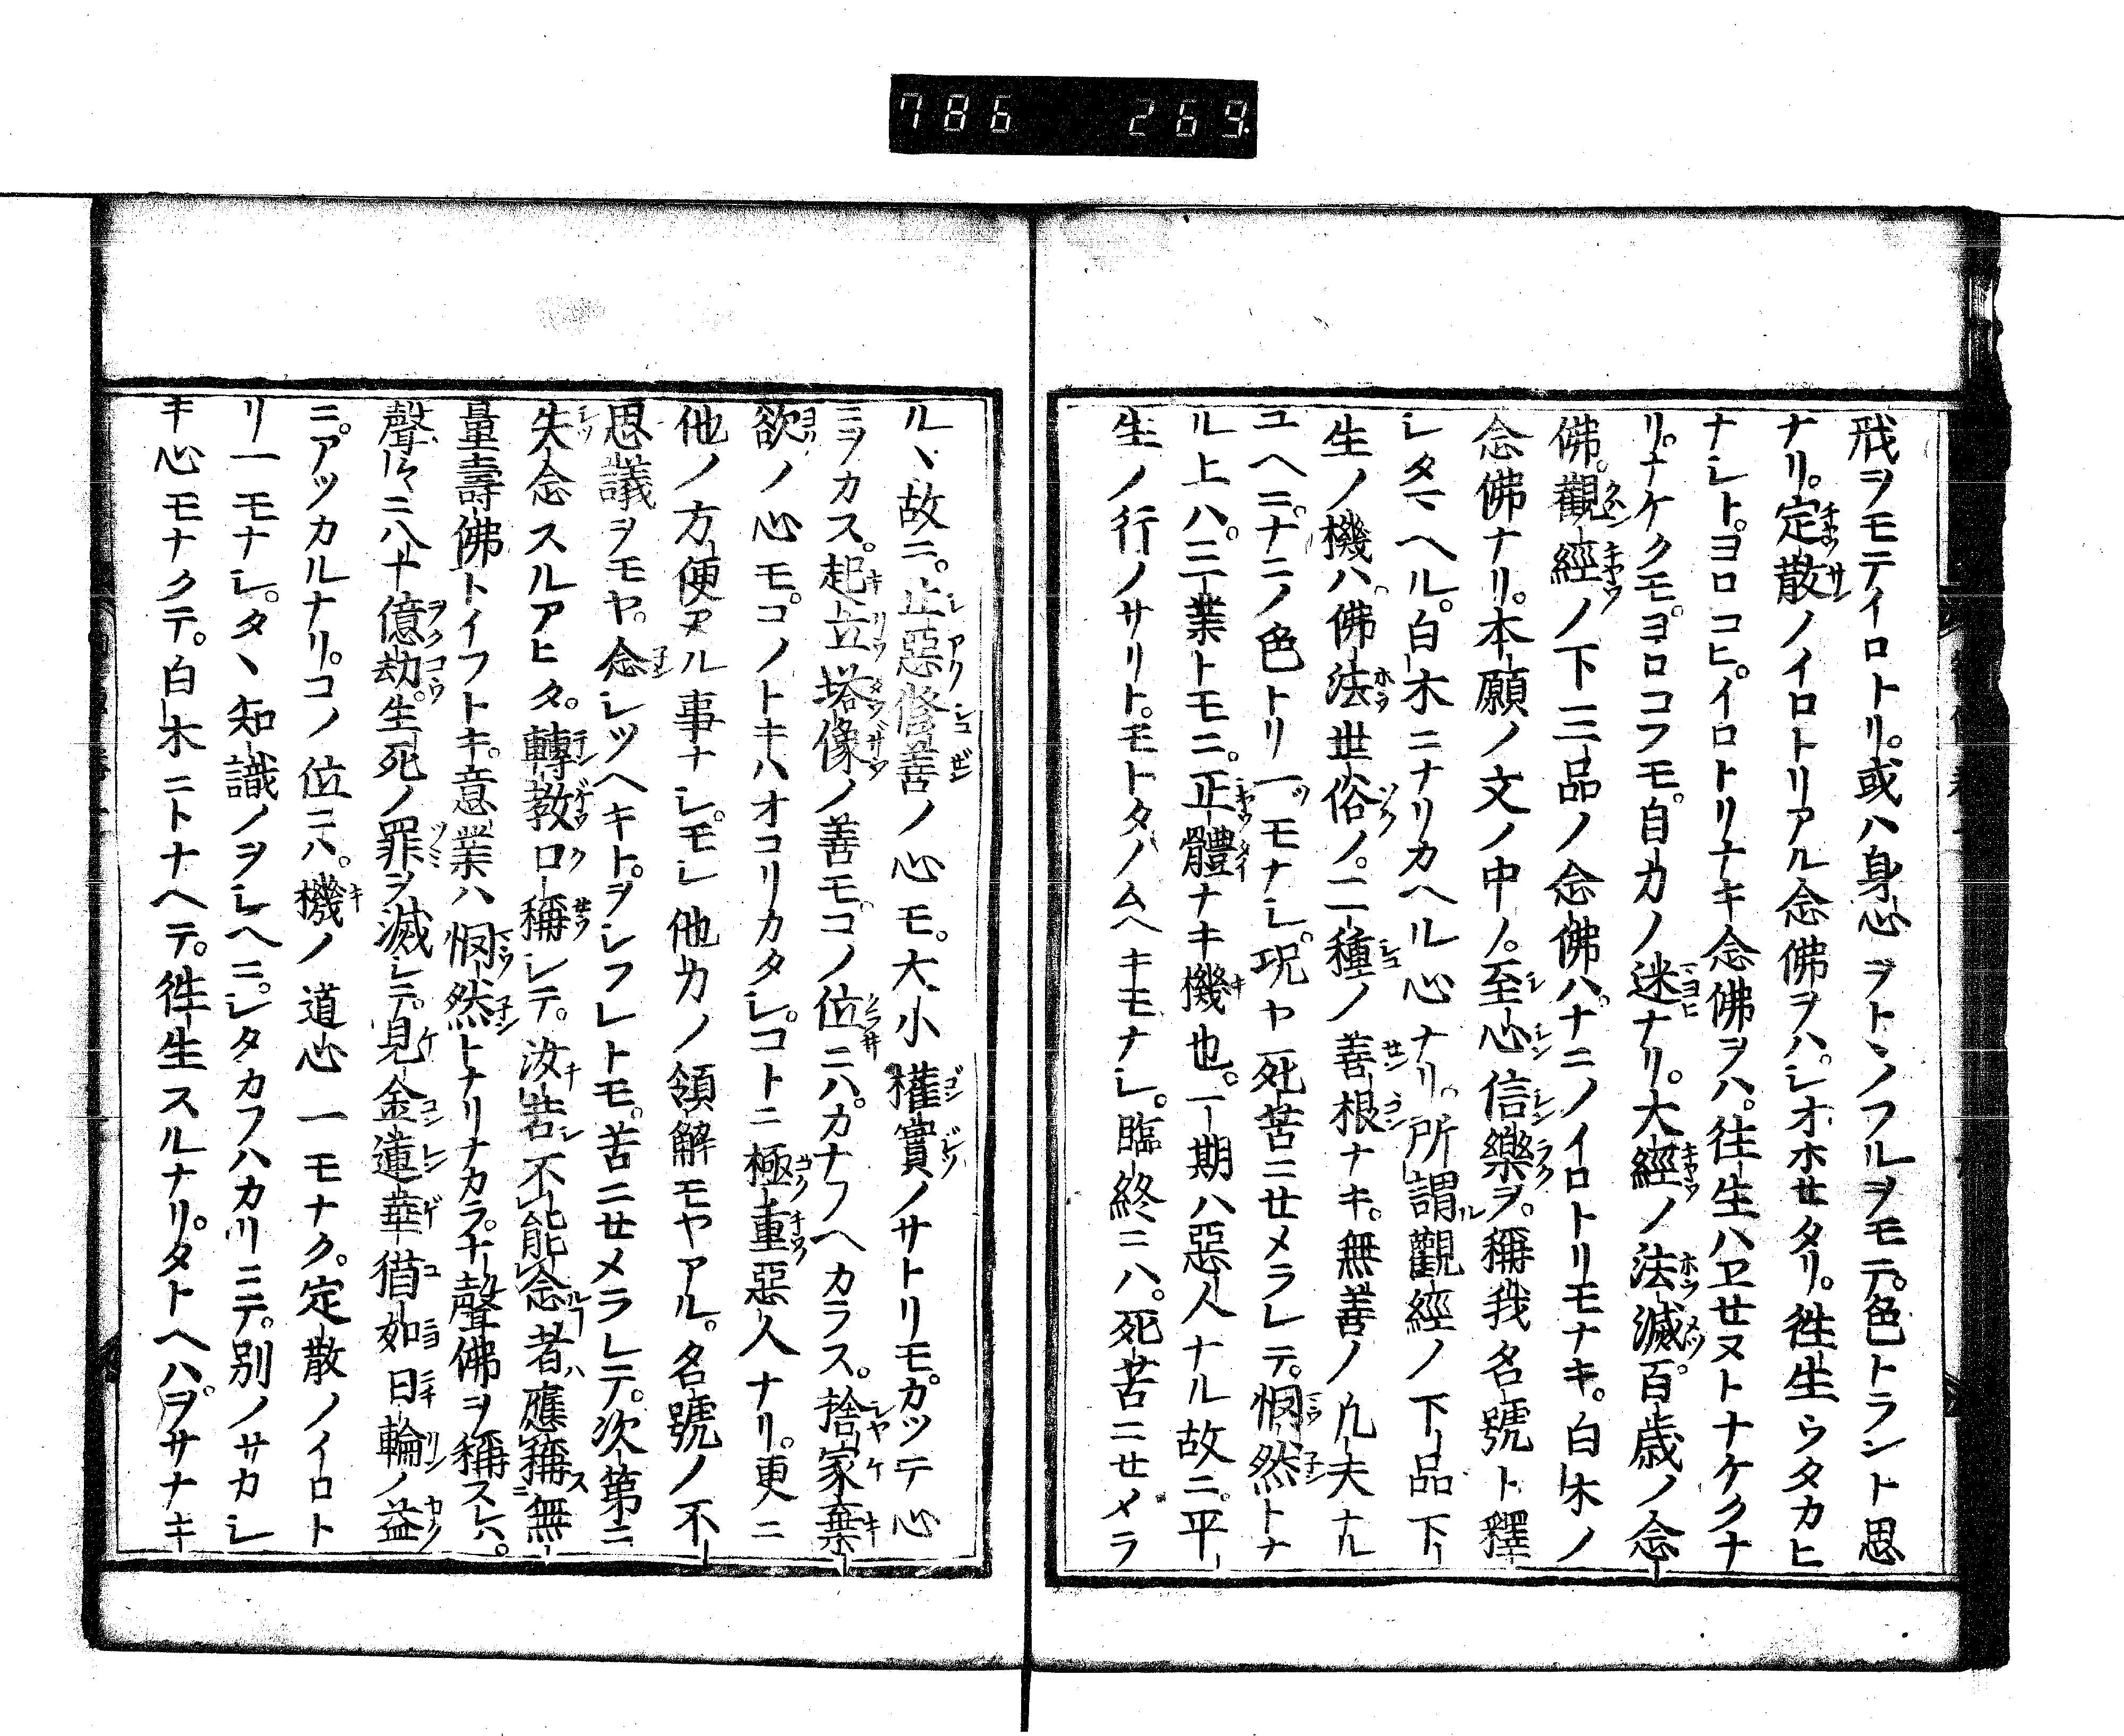 786 269.
戒ヲモテイロトリ。或ハ身心ヲトヽノフルヲモテ。色トラント思
ナリ。定散ノイロトリアル念佛ヲハ。シオホセタリ。徃生ウタカヒ
ナシト。ヨロコヒ。イロトリナキ念佛ヲハ。往生ハヱセヌトナケクナ
リ。ナケクモ。ヨロコフモ。自力ノ迷ナリ。大經ノ法滅百歳ノ念
佛。觀經ノ下三品ノ念佛ハ。ナニノイロトリモナキ。白木ノ
念佛ナリ。本願ノ文ノ中ノ。至心信樂ヲ。稱我名號ト釋
シタマヘル。白木ニナリカヘル心ナリ。所謂觀經ノ下品下
生ノ機ハ。佛法世俗ノ。二種ノ善根ナキ。無善ノ凡夫ナル
ユヘニ。ナニノ色トリ一ツモナシ。况ヤ死苦ニセメラレテ。惘然トナ
ル上ハ。三業トモニ。正體ナキ機也。一期ハ惡人ナル故ニ。平
生ノ行ノサリト。モトタノムヘキモナシ。臨終ニハ。死苦ニセメラ
ルヽ故ニ。止惡修善ノ心モ。大小權實ノサトリモ。カツテ心
ミヲカス。起立塔像ノ善モコノ位ニハ。カナフヘカラス。捨家棄
欲ノ心モ。コノトキハオコリカタシ。コトニ極重惡人ナリ。更ニ
他ノ方便アル事ナシ。モシ他力ノ領解モヤアル。名號ノ不
思議ヲモヤ。念シツヘキト。ヲシフレトモ。苦ニセメラレテ。次第ニ
失念スルアヒタ。轉教口稱シテ。汝若不能念者應稱無
量壽佛トイフトキ。意業ハ惘然トナリナカラ。十聲佛ヲ稱スレハ。
聲々ニ八十億劫。生死ノ罪ヲ滅シテ。見金蓮華猶如日輪ノ益
ニ。アツカルナリ。コノ位ニハ。機ノ道心一モナク。定散ノイロト
リ一モナシ。タヽ知識ノヲシヘニ。シタカフハカリニテ。別ノサカシ
キ心モナクテ。白木ニトナヘテ。徃生スルナリ。タトヘハ。ヲサナキ